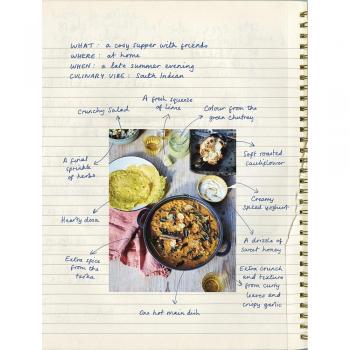 WHAT : a cosy supper with friends
WHERE : at home
WHEN : a late summer evening
CULINARY VIBE : South Indian
A fresh squeeze
of lime
Crunchy Salad
Colour from the
green chutney
A final
sprinkle
of herbs
Soft roasted
cauliflower
Creamy
spiced yoghurt
Hearty dosa
A drizzle of
sweet honey
Extra spice
from the
tarka
Extra crunch
and texture
from curry
leaves and
crispy garlic
hot main dish